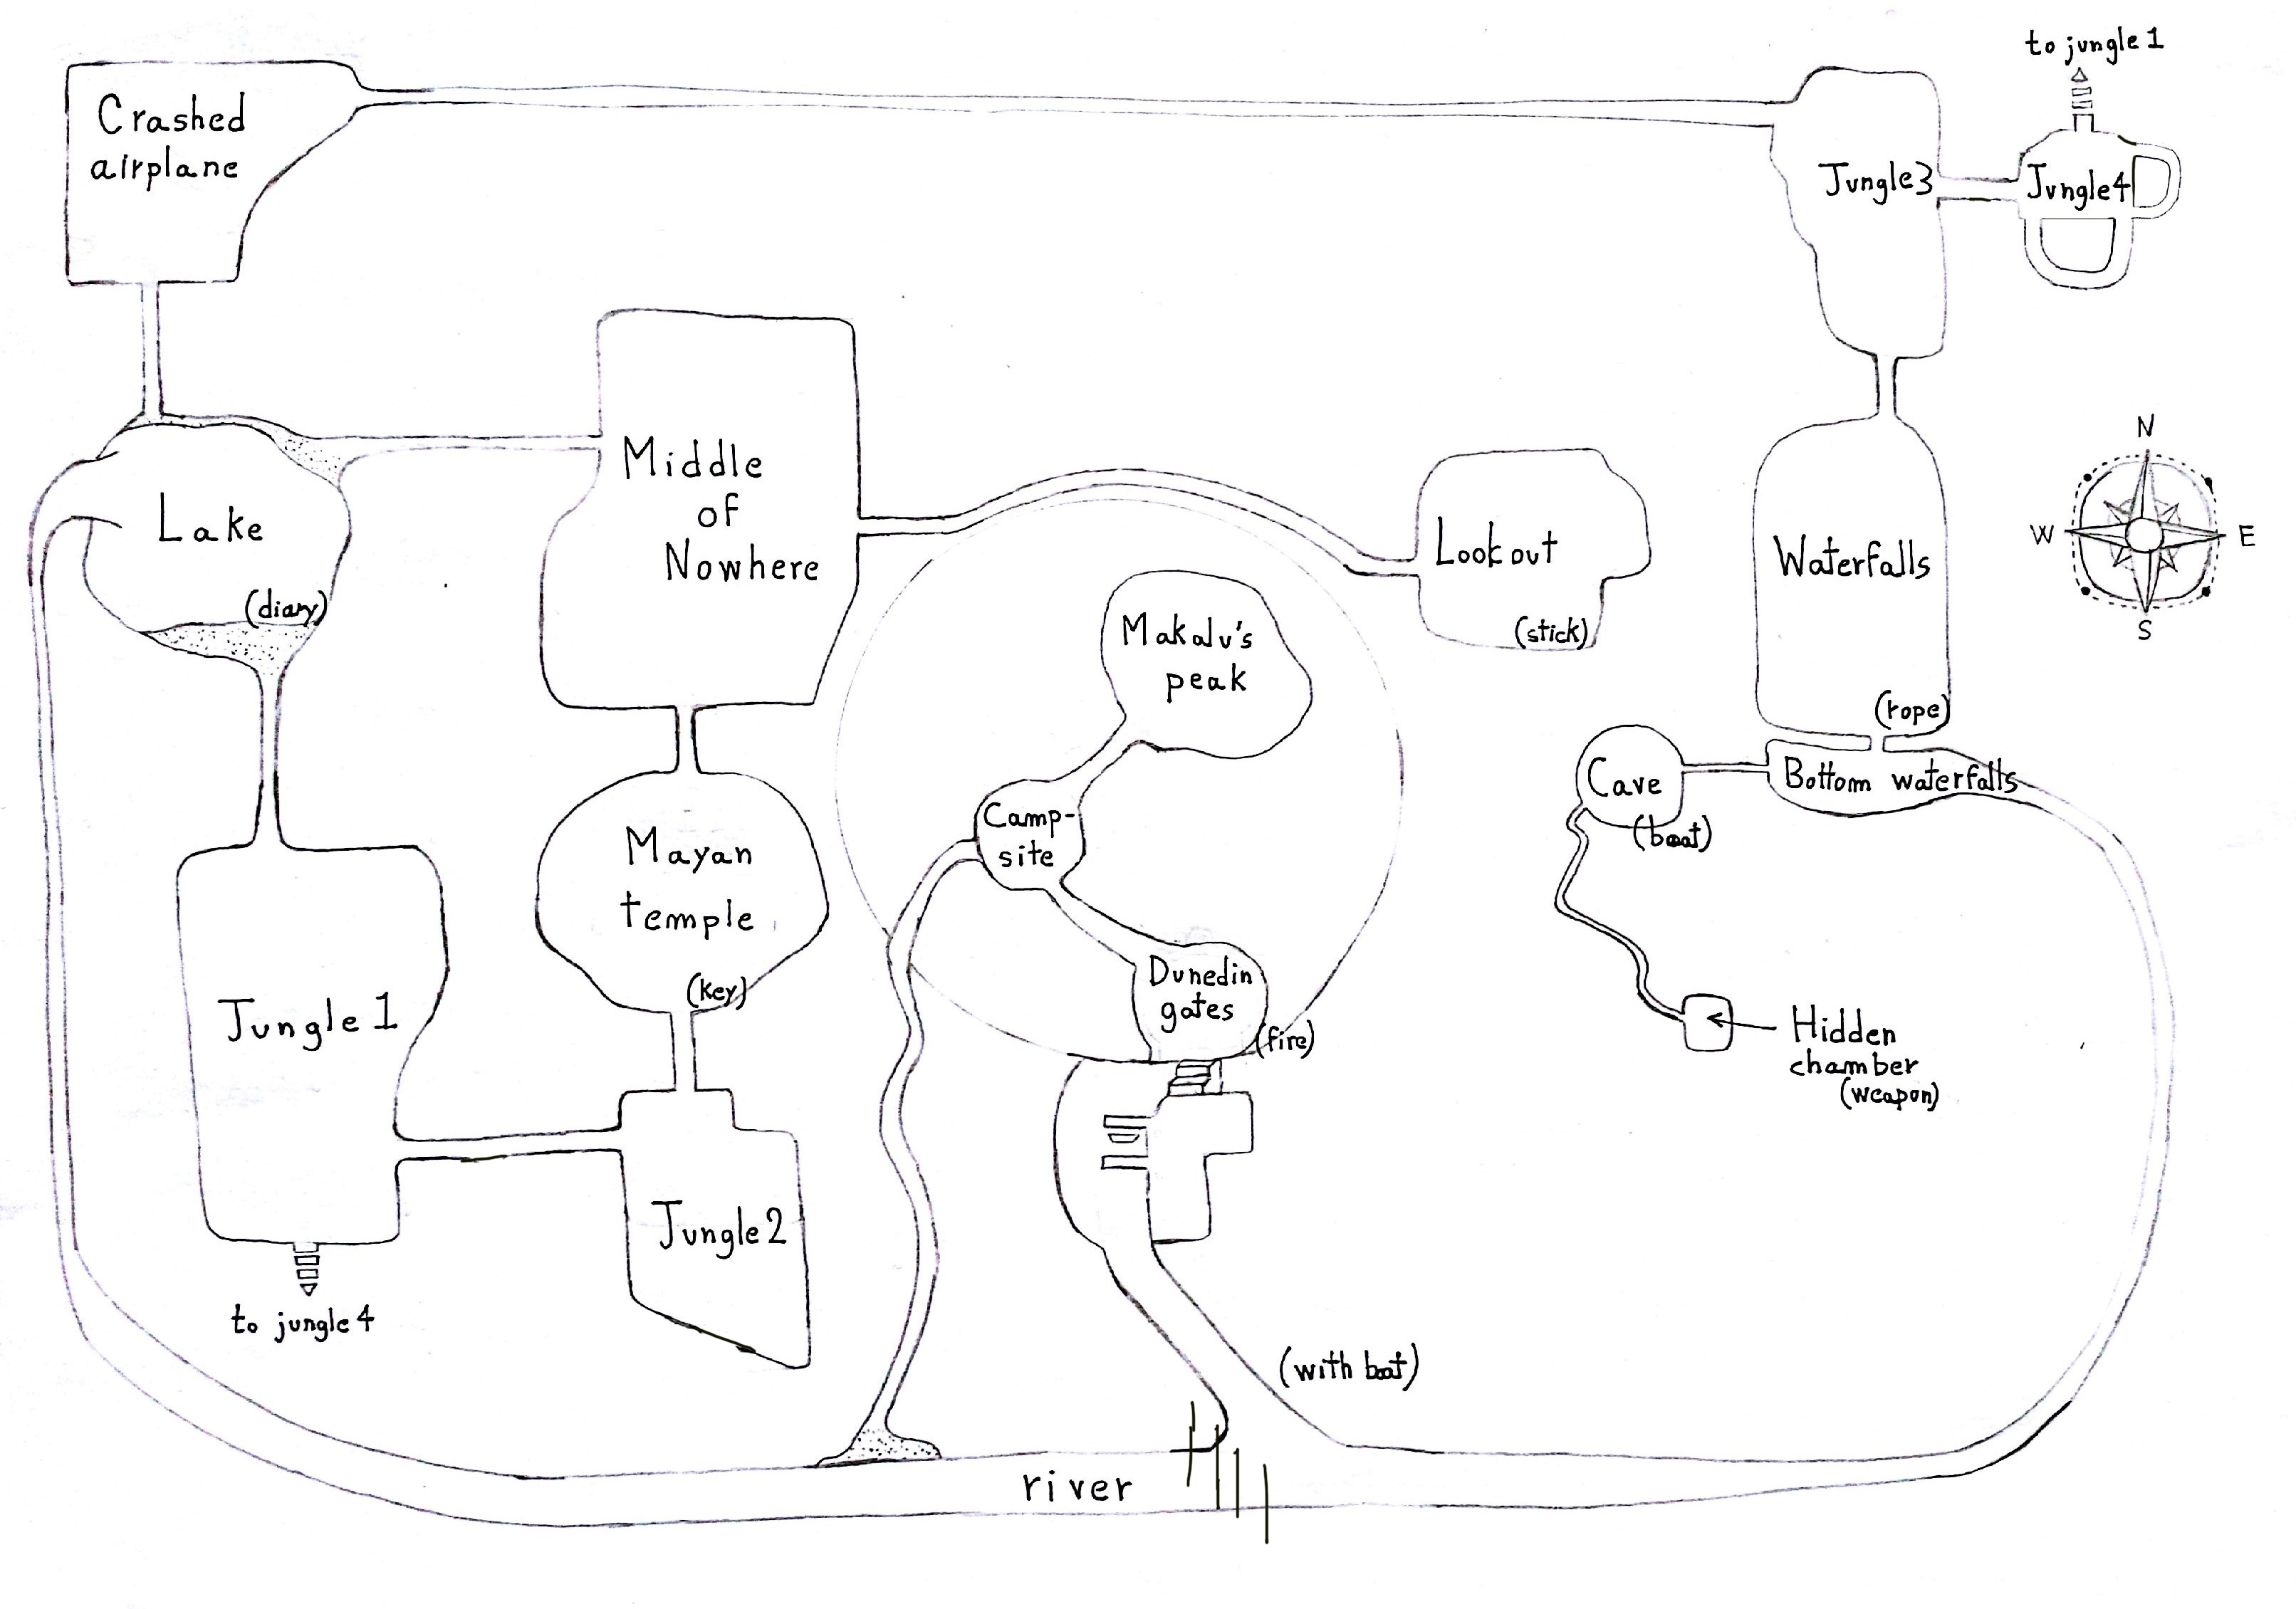 to jungle 1
Crashed
airplane
Jungle3
Jungle4
Middle
of
Nowhere
Lake
(diary)
Lookout
(stick)
Waterfalls
(rope)
N
W
E
S
Makalu's
peak
Camp-
site
Cave
(boat)
Bottom waterfalls
Mayan
temple
(key)
Dunedin
gates
(fire)
Jungle 1
Hidden
chamber
(weapon)
Jungle2
to jungle 4
(with boat)
river